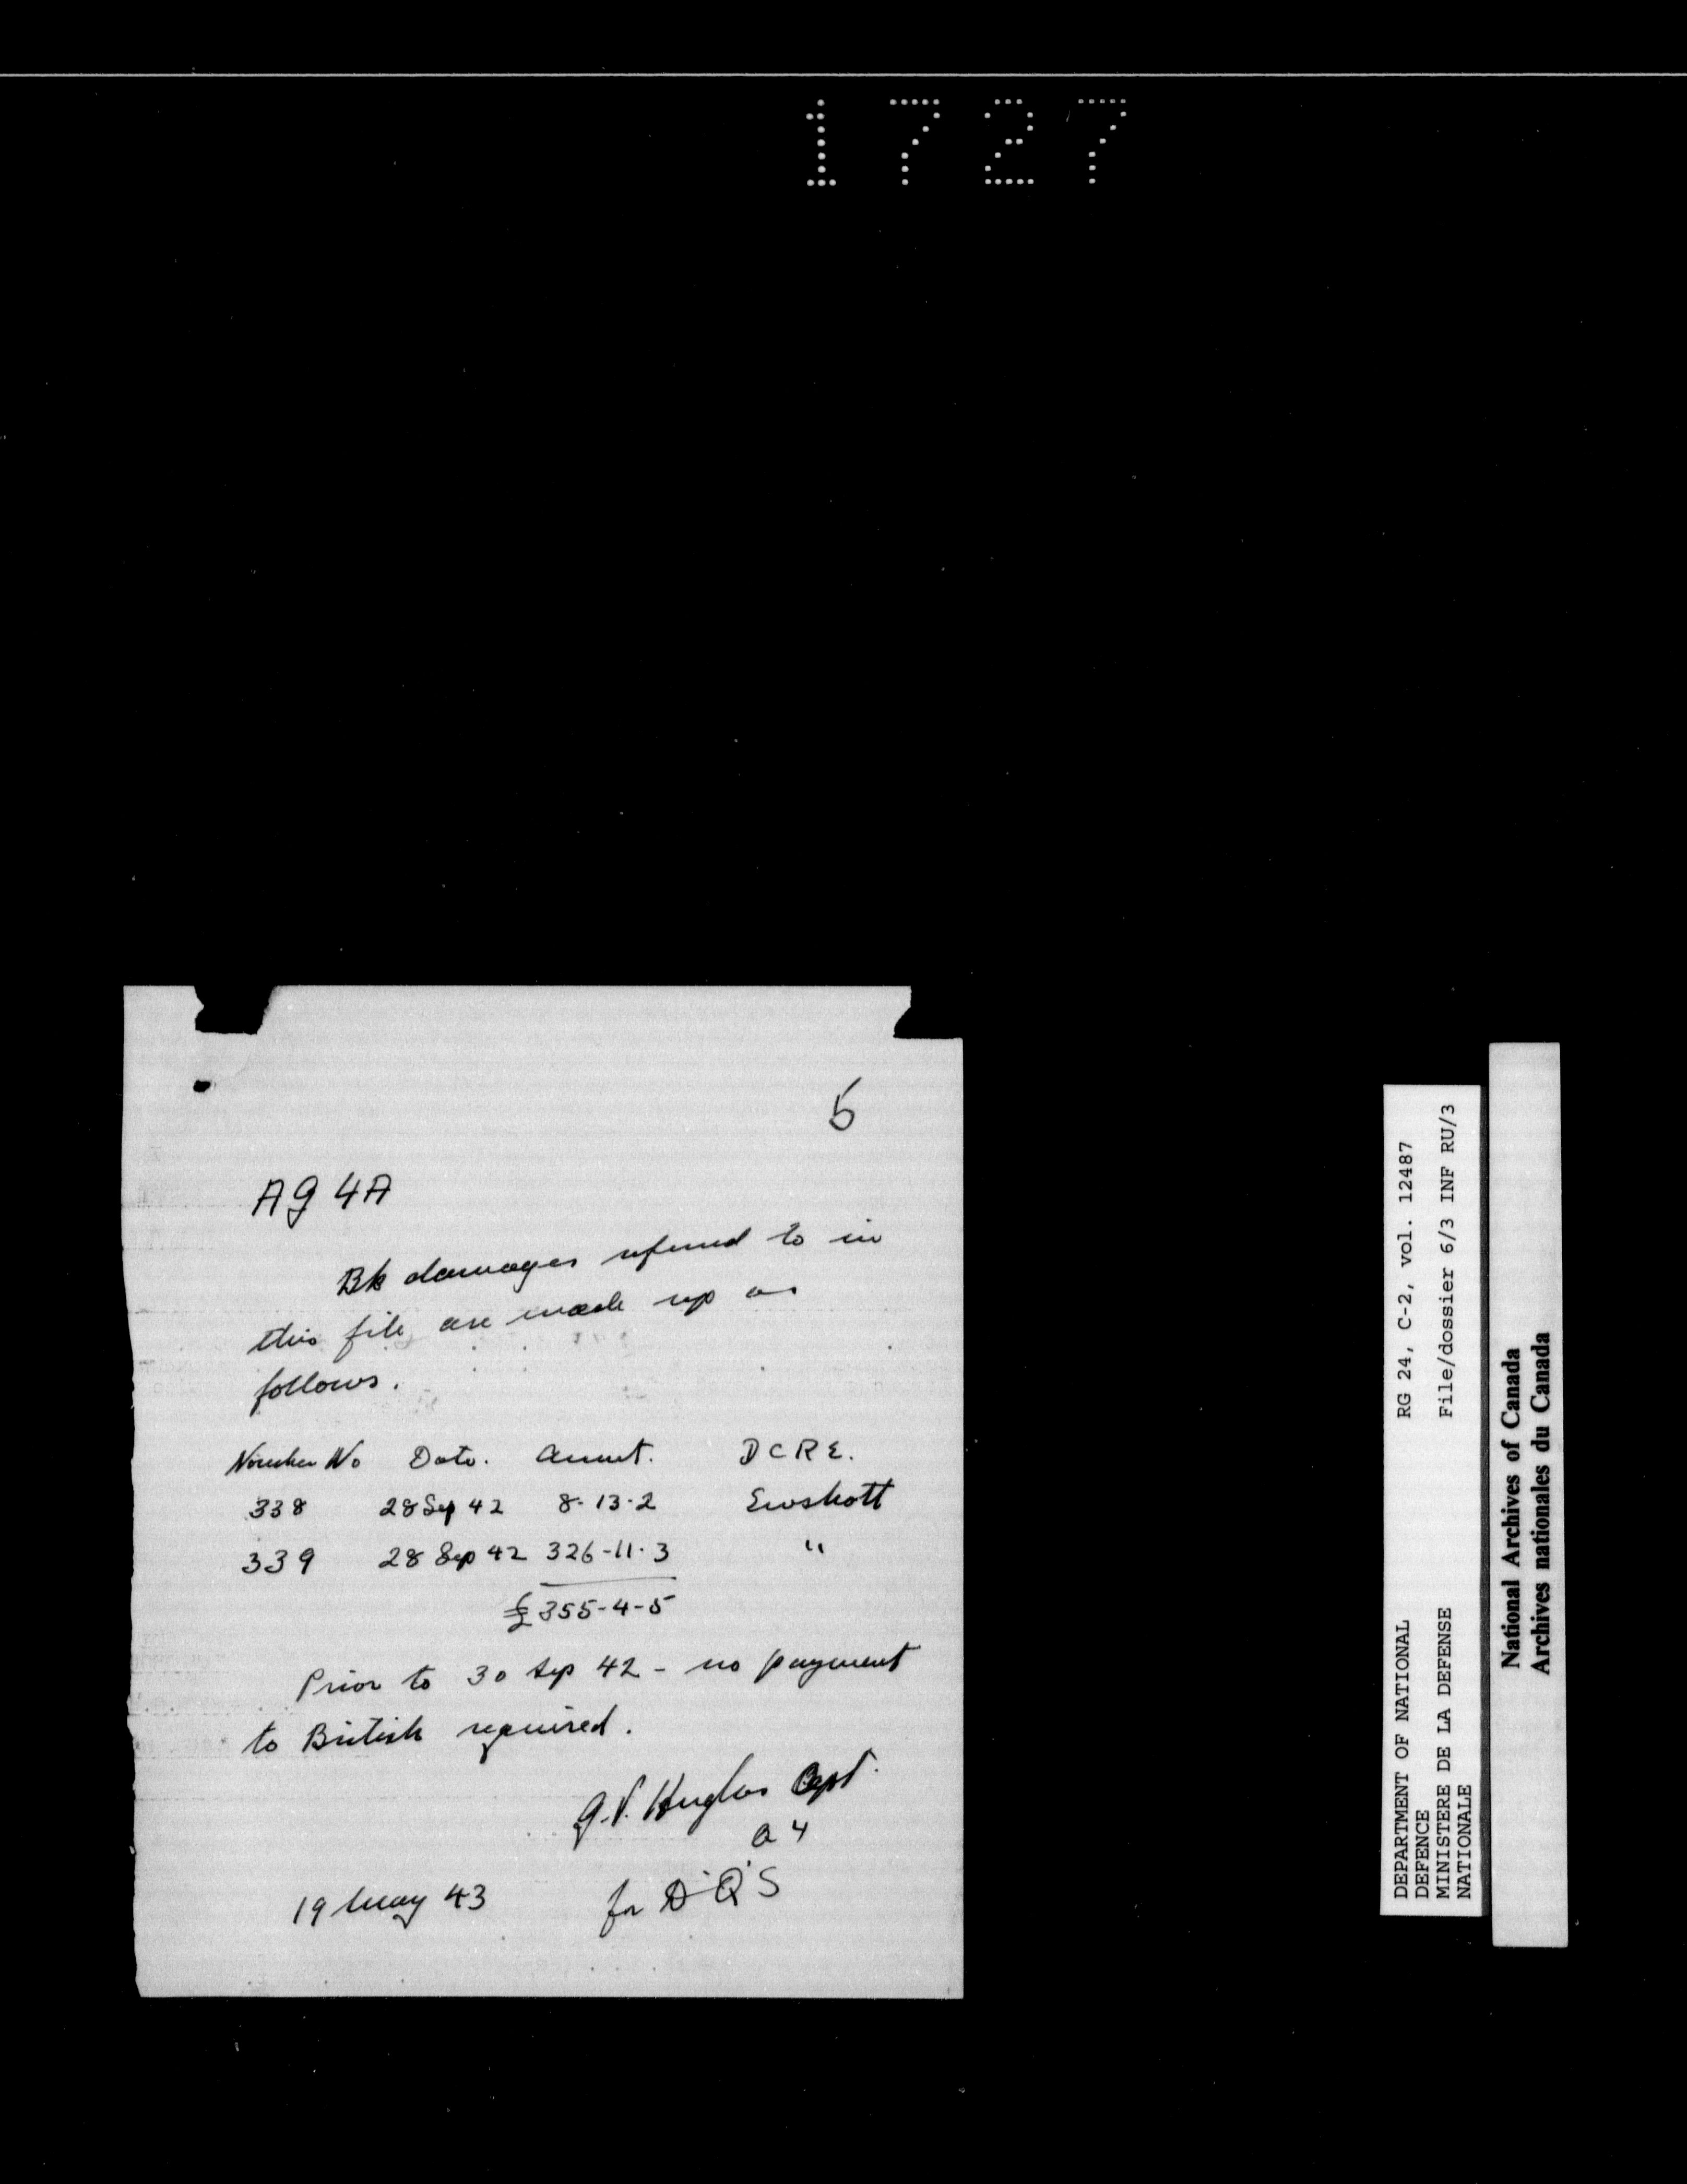 1727
5
AG 4A
Bk damages referred to in
this file are made up as
follows.
Voucher No Date. Amnt. DCRE.
338 28 Sep 42 8-13-2 Ewshott
339 28 Sep 42 326-11-3 "
£355-4-5
Prior to 30 Sep 42 - no payment
to British required.
G.V. Hughes Capt.
Q4
19 May 43 for D.Q.S
DEPARTMENT OF NATIONAL RG 24, C-2, vol. 12487
DEFENCE
MINISTERE DE LA DEFENSE File/dossier 6/3 INF RU/3
NATIONALE
National Archives of Canada
Archives nationales du Canada